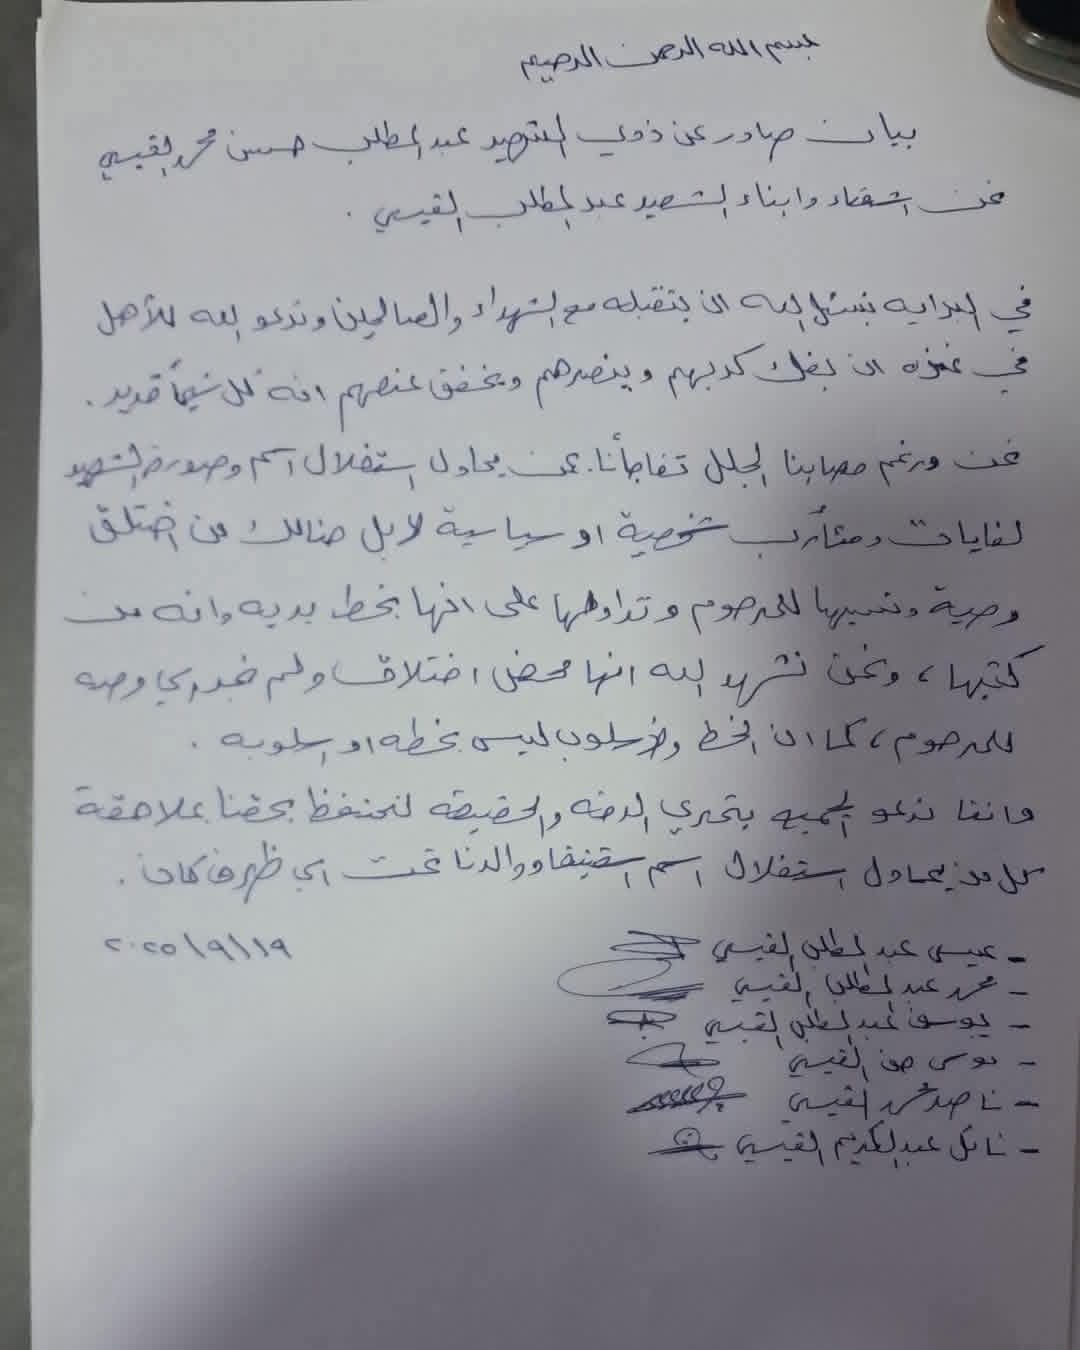 بسم الله الرحمن الرحيم
بيان صادر عن ذوي الشهيد عبدالمطلب حسن محمد القيسي
نحن اشقاء وابناء الشهيد عبدالمطلب القيسي .
في البدايه نسئل الله ان يتقبله مع الشهداء والصالحين وندعو الله للأهل
في غزه ان يفك كربهم وينصرهم ويخفق عنهم انه كل شيئاً قدير .
نحن ورغم مصابنا الجلل تفاجأنا بمن يحاول استغلال اسم وصورة الشهيد
لغايات ومئأرب شخصية او سياسية لا بل هنالك من اختلق
وصية ونسبها للمرحوم وتداولها على انها بخط يديه وانه من
كتبها ، ونحن نشهد الله انها محض اختلاق ولم نجد اي وصيه
للمرحوم ، كما ان الخط والاسلوب ليس بخطه او اسلوبه .
واننا ندعو الجميع بتحري الدقه والحقيقه لنحتفظ بحقنا بملاحقة
كل من يحاول استغلال اسم شقيقنا ووالدنا تحت اي ظرف كان .
- عيسى عبدالمطلب القيسي ٢٠٢٥/٩/١٩
- محمد عبدالمطلب القيسي
- يوسف عبدالمطلب القيسي
- موسى القيسي
- ناصر محمد القيسي
- نائل عبدالكريم القيسي